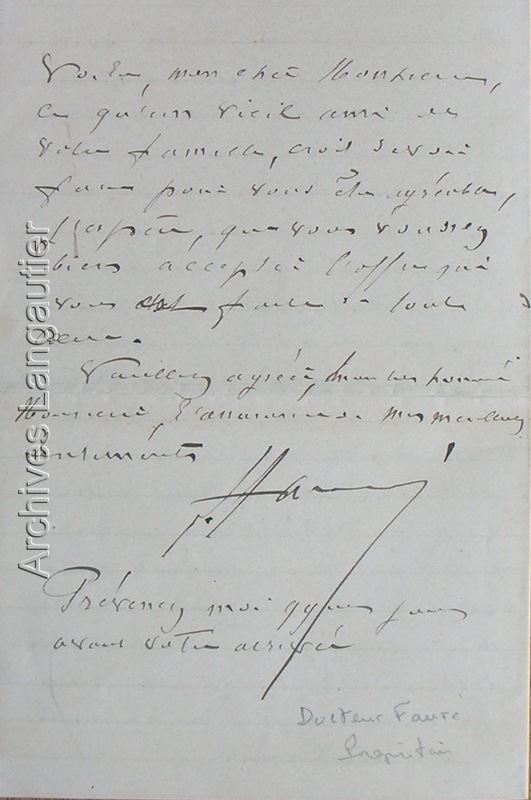 Voilà, mon cher Monsieur,
ce qu'un vieil ami de
votre famille, crois devoir
faire pour vous être agréable,
J'espère, que vous voudrez
bien accepter l'offre qui
vous est faite de toute
Veuillez agréer, mon
Monsieur, l'assurance de mes meilleurs
sentiments
Faure
Prévenez moi qques jours
avant votre arrivée
Docteur Fauré
Archives Langautier